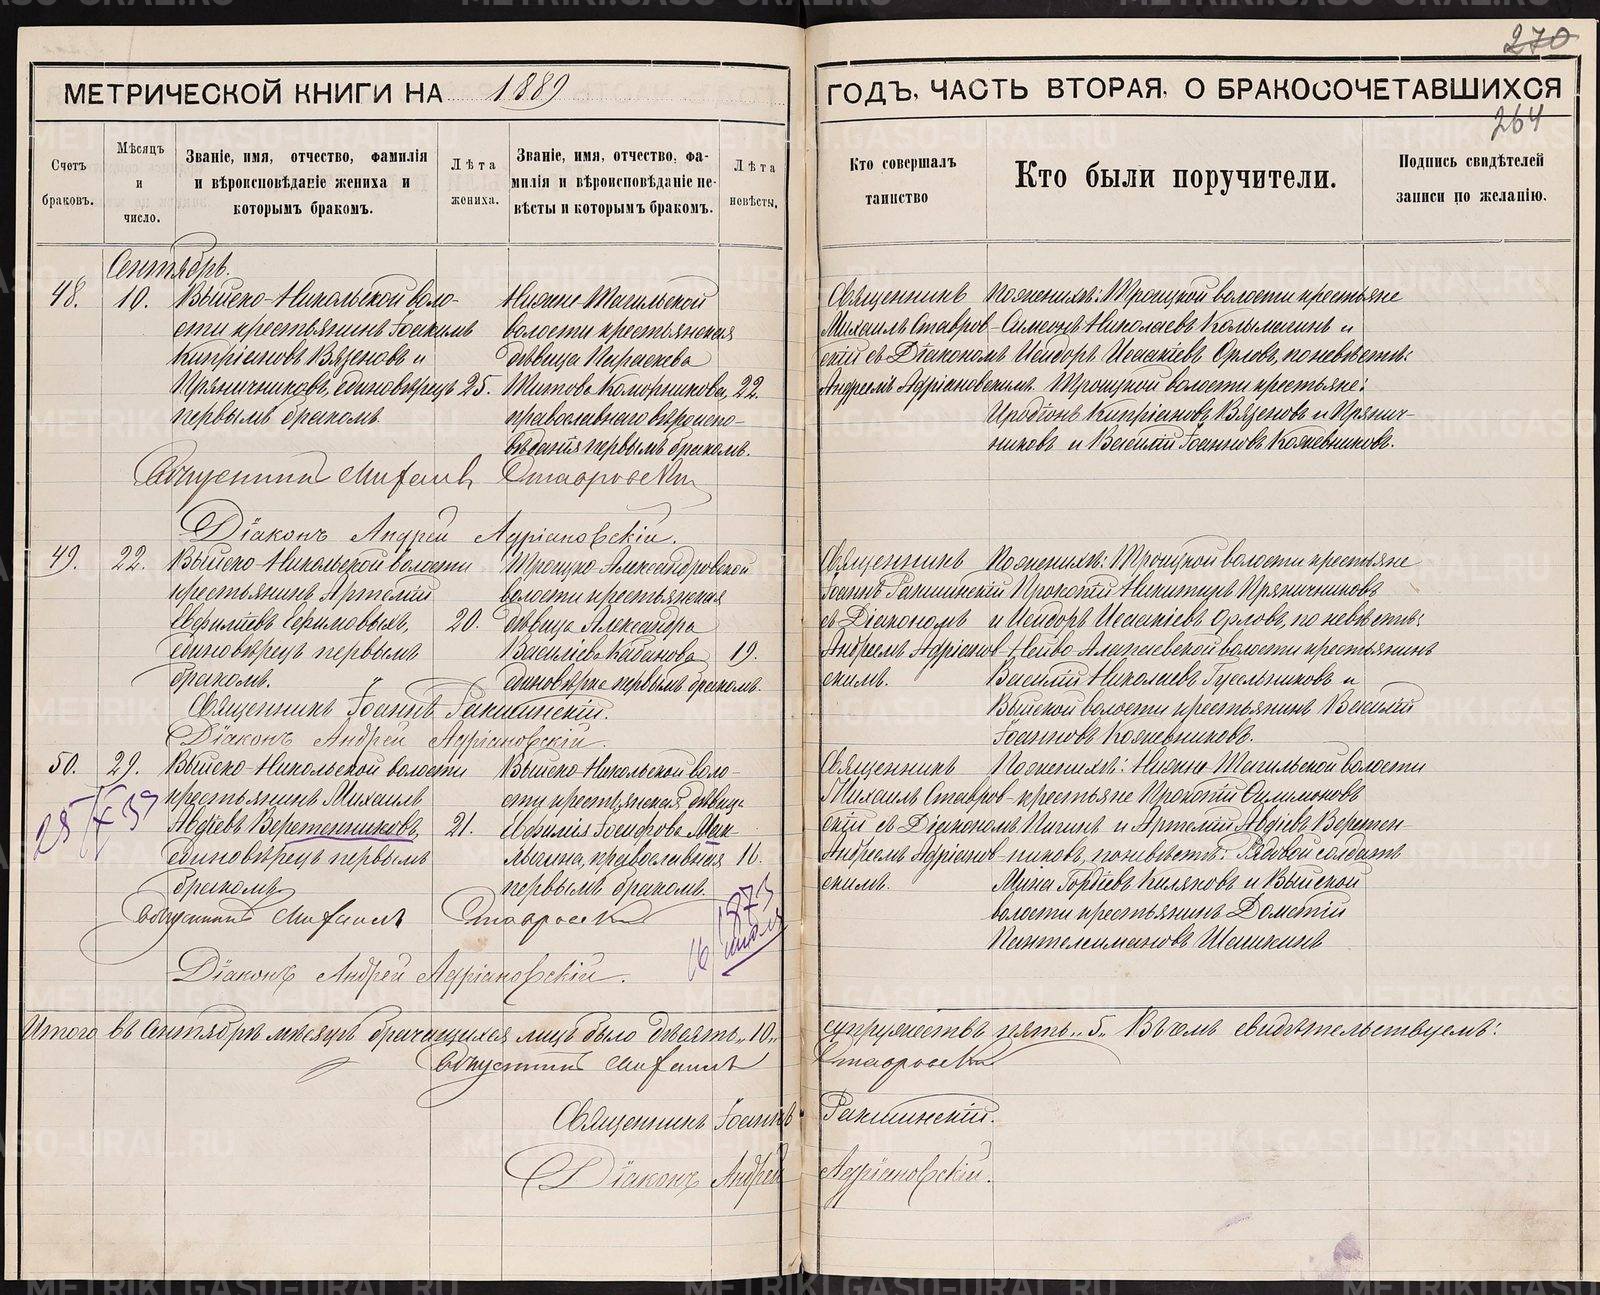 270
МЕТРИЧЕСКОЙ КНИГИ НА 1889
ГОДЪ, ЧАСТЬ ВТОРАЯ, О БРАКОСОЧЕТАВШИХСЯ
264
Счетъ браковъ.
Мѣсяцъ и число.
Званіе, имя, отчество, фамилія
и вѣроисповѣданіе жениха и
которымъ бракомъ.
Лѣта жениха.
Званіе, имя, отчество, фа-
милія и вѣроисповѣданіе не-
вѣсты и которымъ бракомъ.
Лѣта невѣсты.
Кто совершалъ
таинство
Кто были поручители.
Подпись свидѣтелей
записи по желанію.
Сентябрь.
48. 10.
Выйско-Никольской воло-
сти крестьянинъ Іоакимъ
Кипріановъ Вязеновъ и
Пряничниковъ, единовѣрецъ 25.
первымъ бракомъ.
Нижне-Тагильской
волости крестьянская
дѣвица Параскева
Титова Колотникова, 22.
православнаго вѣроиспо-
вѣданія первымъ бракомъ.
Священникъ
Михаилъ Ставров-
скій съ Діакономъ
Андреемъ Адріановскимъ.
По женихѣ: Троицкой волости крестьяне
Симеонъ Николаевъ Калымагинъ и
Исидоръ Исаакіевъ Орловъ, по невѣстѣ:
Троицкой волости крестьяне:
Иродіонъ Кипріановъ Вязеновъ и Прянич-
никовъ и Василій Іоанновъ Кожевниковъ.
Михаилъ Ставровскій
Діаконъ Андрей Адріановскій.
49. 22.
Выйско-Никольской волости
крестьянинъ Артемій
20.
единовѣрецъ первымъ
бракомъ.
Троицко-Александровской
волости крестьянская
дѣвица Александра
Василіева Кабанова 19.
единовѣрка первымъ бракомъ.
Священникъ
Іоаннъ Ракшинскій
съ Діакономъ
Андреемъ Адріанов-
скимъ.
По женихѣ: Троицкой волости крестьяне
Прокопій Никитинъ Пряничниковъ
и Исидоръ Исаакіевъ Орловъ, по невѣстѣ:
Нейво-Алапаевской волости крестьянинъ
Василій Николаевъ Гусельниковъ и
Выйской волости крестьянинъ Василій
Іоанновъ Кожевниковъ.
Священникъ Іоаннъ Ракшинскій.
Діаконъ Андрей Адріановскій.
50. 29.
Выйско-Никольской волости
крестьянинъ Михаилъ
Авдіевъ Веретенниковъ, 21.
единовѣрецъ первымъ
бракомъ
Выйско-Никольской воло-
сти крестьянская дѣвица
Евфимія Іосифова Мак-
православная 16.
первымъ бракомъ.
Священникъ
Михаилъ Ставров-
скій съ Діакономъ
Андреемъ Адріанов-
скимъ.
По женихѣ: Нижне-Тагильской волости
крестьяне Прокопій Филимоновъ
и Артемій Авдіевъ Веретен-
никовъ, по невѣстѣ: Рядовой солдатъ
Мина Гордіевъ Киляковъ и Выйской
волости крестьянинъ Дометій
Пантелеимоновъ Шашкинъ
Михаилъ Ставровскій
1873
16 июля
Діаконъ Андрей Адріановскій.
Итого въ Сентябрѣ мѣсяцѣ брачащихся лицъ было десять „10„ супружествъ пять „5„ Въ чемъ свидѣтельствуемъ:
Михаилъ Ставровскій
Священникъ Іоаннъ Ракшинскій.
Діаконъ Андрей Адріановскій.
METRIKI.GASO-URAL.RU